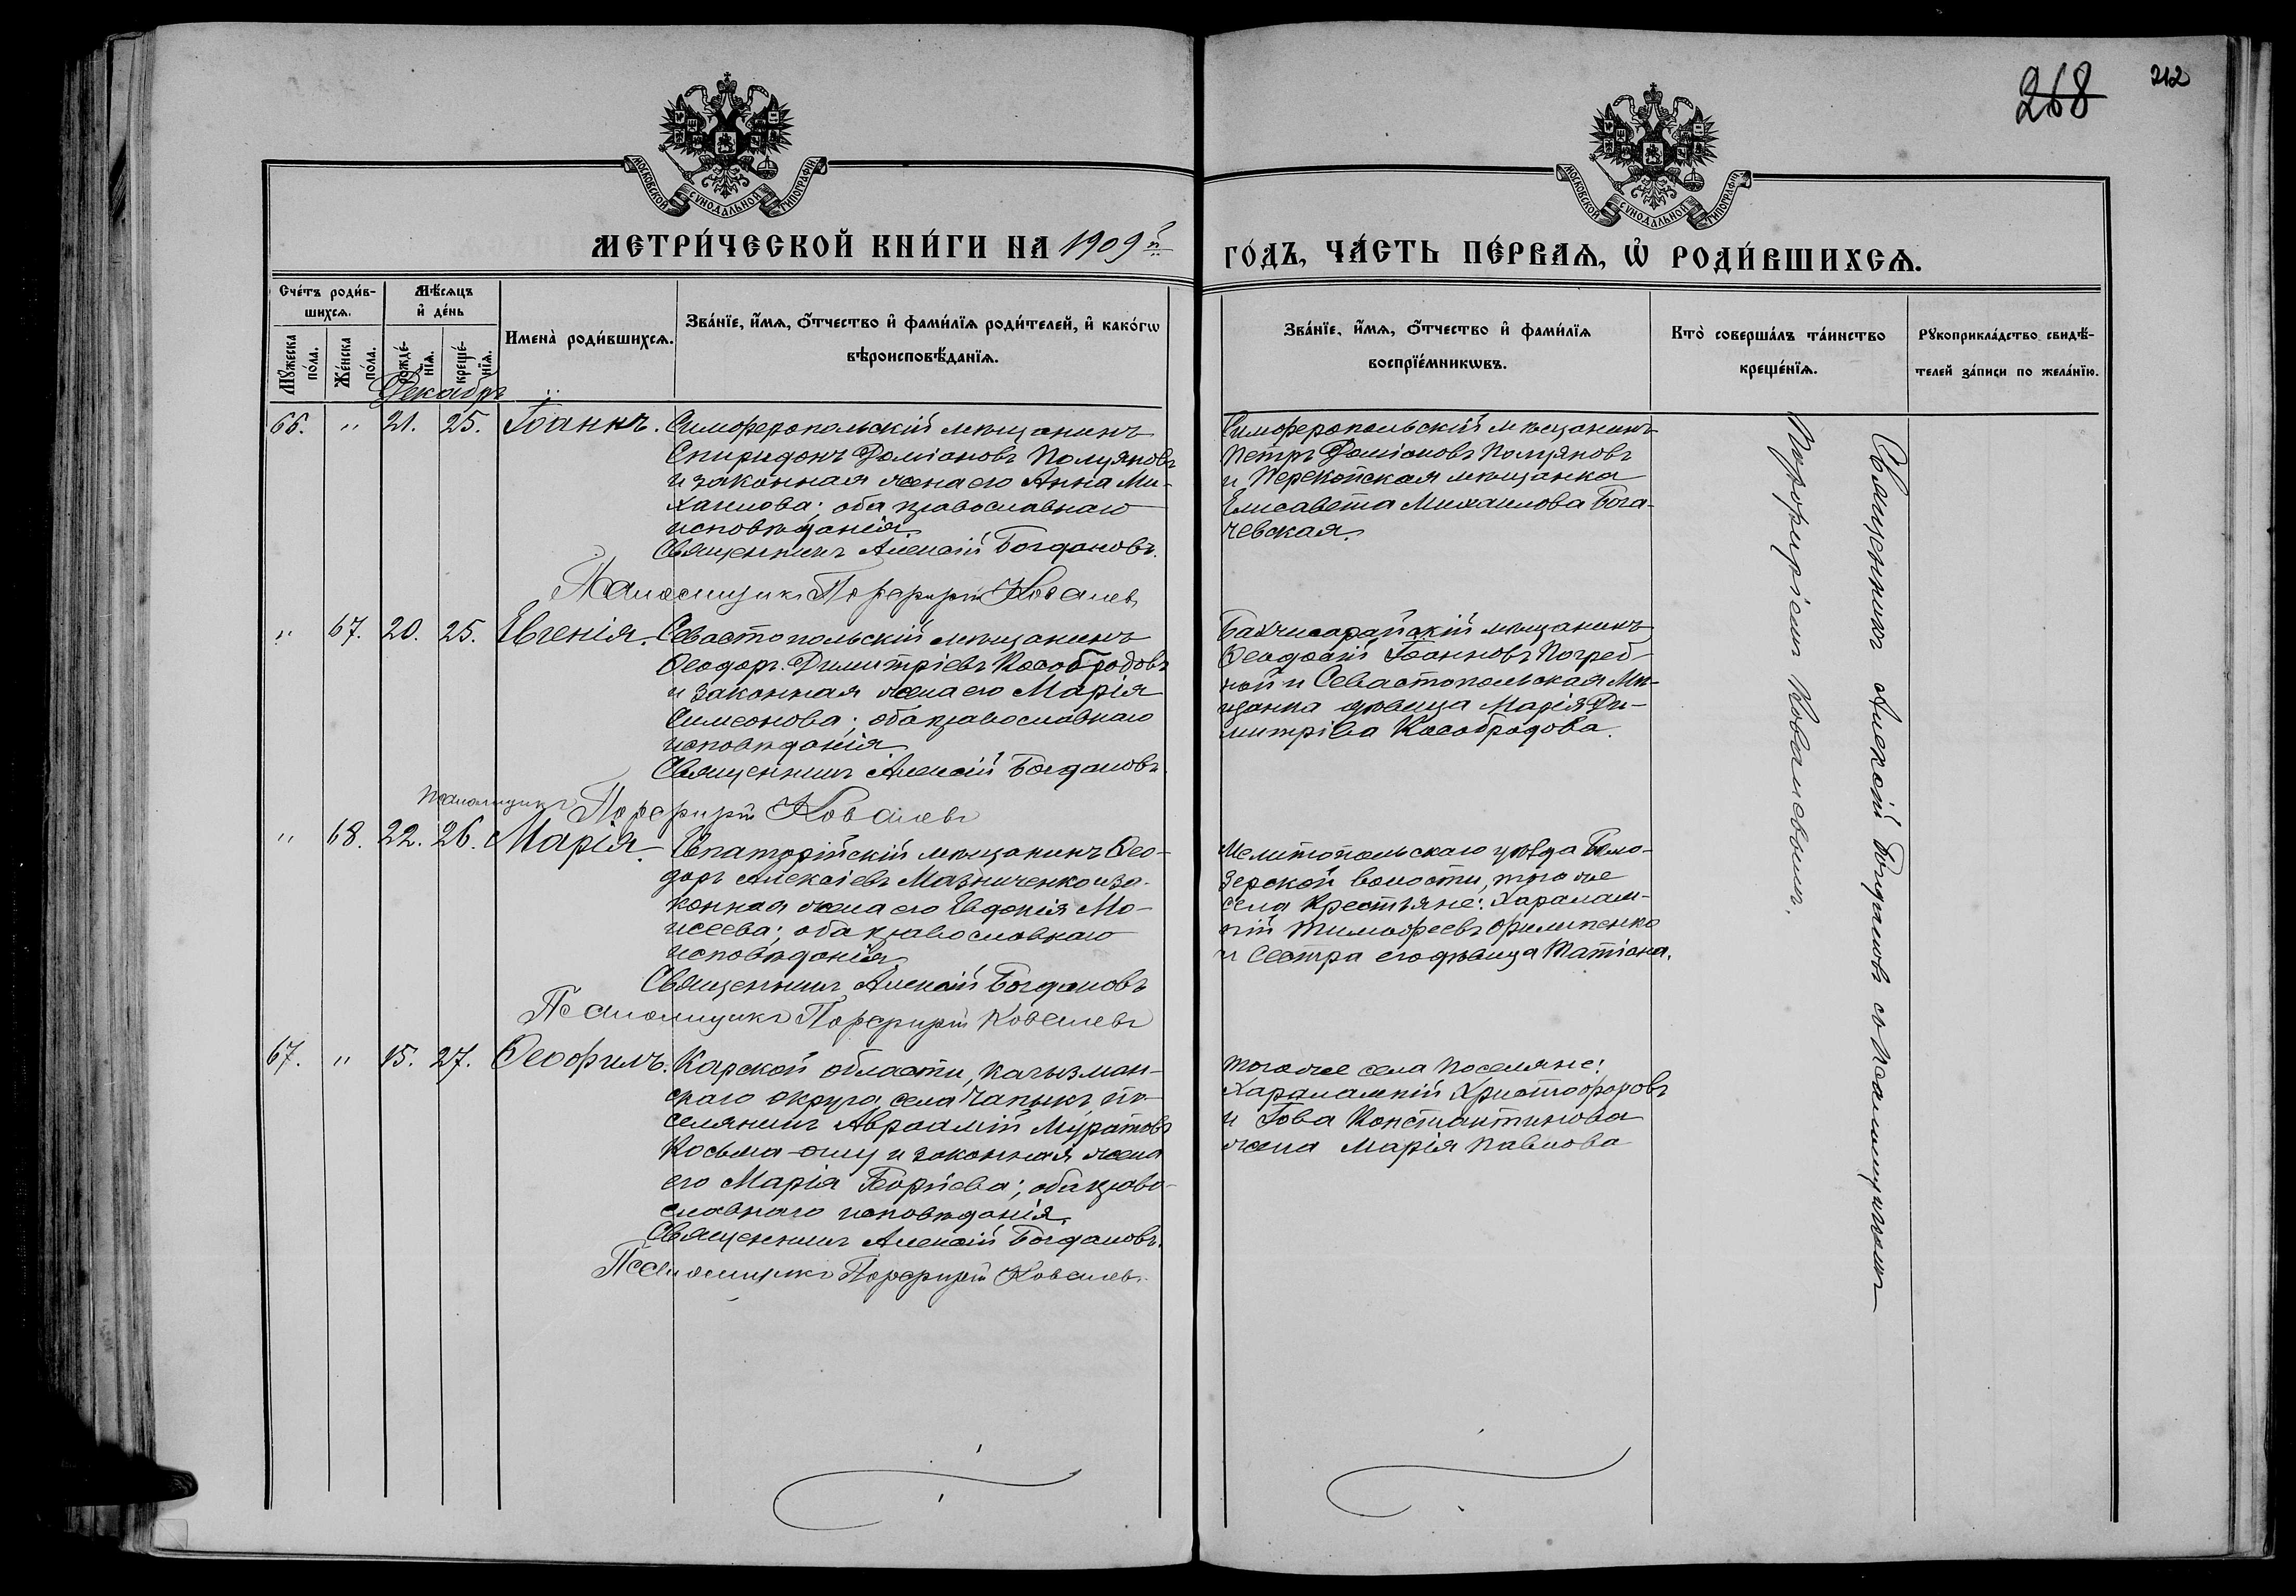 268 212
МОСКОВСКОЙ СѴНОДАЛЬНОЙ ТИПОГРАФІИ
МОСКОВСКОЙ СѴНОДАЛЬНОЙ ТИПОГРАФІИ
МЕТРИ́ЧЕСКОЙ КНИ́ГИ НА 1909й
ГО́ДЪ, ЧА́СТЬ ПЕ́РВАѦ, Ѡ҆ РОДИ́ВШИХСѦ.
Сче́тъ роди́в-
шихсѧ.
Мѣ́сѧцъ
и҆ де́нь
Мꙋ́жеска
по́ла.
Же́нска
по́ла.
рожде́-
нїѧ.
креще́-
нїѧ.
Именà роди́вшихсѧ.
Зва́нїе, и҆́мѧ, ѻ҆́тчество и҆ фами́лїѧ роди́телей, и҆ како́гѡ
вѣроисповѣ́данїѧ.
Зва́нїе, и҆́мѧ, ѻ҆́тчество и҆ фами́лїѧ
воспрїе́мникѡвъ.
Кто̀ соверша́лъ та́инство
креще́нїѧ.
Рꙋкоприкла́дство свидѣ́-
телей за́писи по жела́нїю.
Декабрь
66. " 21. 25. Іоаннъ. Симферопольскій мѣщанинъ
Спиридонъ Даміановъ Полуяновъ
и законная жена его Анна Ми-
хаилова; оба православнаго
исповѣданія.
Священникъ Алексій Богдановъ.
Псаломщикъ Порфирій Ковалевъ
Симферопольскій мѣщанинъ
Петръ Даміановъ Полуяновъ
и Перекопская мѣщанка
Елисавета Михаилова Бога-
чевская.
" 67. 20. 25. Евгенія. Севастопольскій мѣщанинъ
Ѳеодоръ Димитріевъ Кособродовъ
и законная жена его Марія
Симеонова; оба православнаго
исповѣданія.
Священникъ Алексій Богдановъ.
Псаломщикъ Порфирій Ковалевъ
Бахчисарайскій мѣщанинъ
Ѳеодосій Іоанновъ Погреб-
ной и Севастопольская мѣ-
щанка дѣвица Марія Ди-
митріева Кособродова.
" 68. 22. 26. Марія. Евпаторійскій мѣщанинъ Ѳео-
доръ Алексіевъ Мазниченко и за-
конная жена его Евдокія Мо-
исеева; оба православнаго
исповѣданія.
Священникъ Алексій Богдановъ
Псаломщикъ Порфирій Ковалевъ
Мелитопольскаго уѣзда Бело-
зерской волости, того же
села крестьяне: Харалам-
пій Тимофеевъ Филипенко
и сестра его дѣвица Татіана.
67. " 15. 27. Ѳеофилъ. Карской области, Кагызман-
скаго округа села Чапыкъ по-
селянинъ Авраамій Муратовъ
Косьма-оглу и законная жена
его Марія Георгіева; оба право-
славнаго исповѣданія.
Священникъ Алексій Богдановъ.
Псаломщикъ Порфирій Ковалевъ.
того же села поселяне:
Харалампій Христофоровъ
и Іова Константинова
жена Марія Павлова
Священникъ Алексій Богдановъ со псаломщикомъ
Порфиріемъ Ковалевымъ.